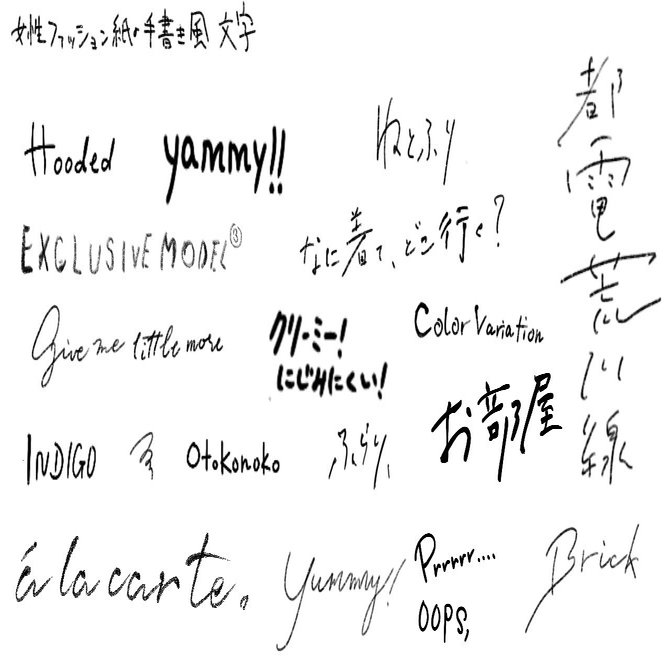 女性ファッション紙・手書き風文字
Hooded
yammy!!
ねとふり
都電荒川線
EXCLUSIVE MODEL③
なに着て、どこ行く?
Give me little more
クリーミー!
にじみにくい!
Color Variation
お部屋
INDIGO
Otokonoko
ふらり、
á la carte.
Yummy!!
Prrrrr....
OOPS,
Brick